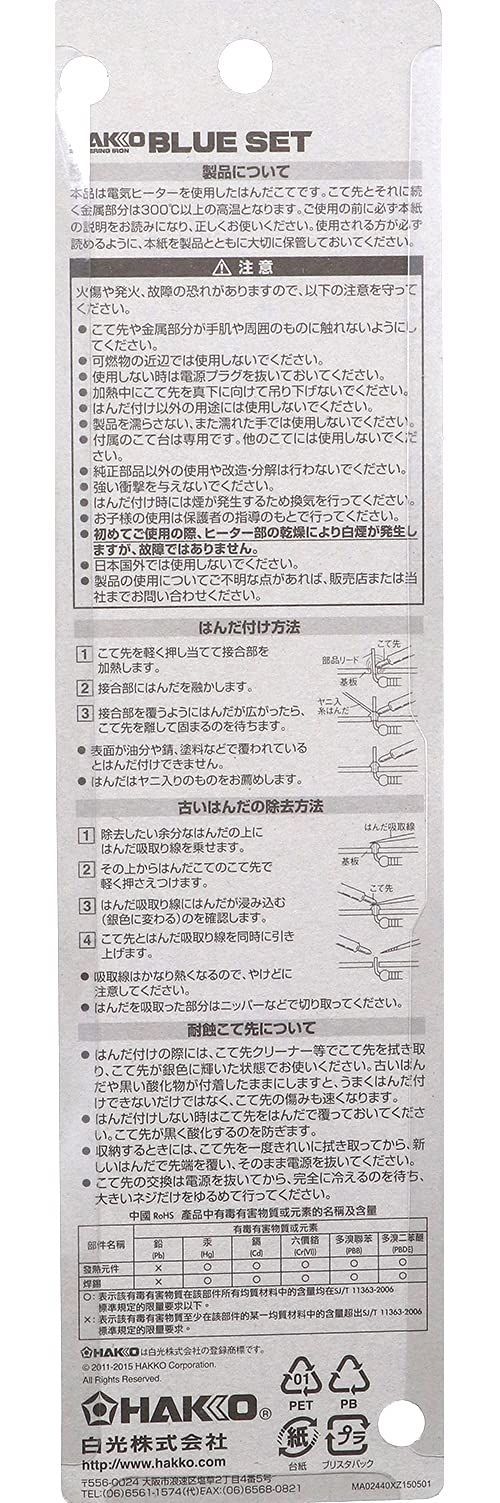 HAKKO BLUE SET
SOLDERING IRON
製品について
本品は電気ヒーターを使用したはんだこてです。こて先とそれに続
く金属部分は300℃以上の高温となります。ご使用の前に必ず本紙
の説明をお読みになり、正しくお使いください。使用される方が必ず
読めるように、本紙を製品とともに大切に保管しておいてください。
⚠ 注意
火傷や発火、故障の恐れがありますので、以下の注意を守って
ください。
● こて先や金属部分が手肌や周囲のものに触れないようにし
てください。
● 可燃物の近辺では使用しないでください。
● 使用しない時は電源プラグを抜いておいてください。
● 加熱中にこて先を真下に向けて吊り下げないでください。
● はんだ付け以外の用途には使用しないでください。
● 製品を濡らさない、また濡れた手では使用しないでください。
● 付属のこて台は専用です。他のこてには使用しないでくだ
さい。
● 純正部品以外の使用や改造・分解は行わないでください。
● 強い衝撃を与えないでください。
● はんだ付け時には煙が発生するため換気を行ってください。
● お子様の使用は保護者の指導のもとで行ってください。
● 初めてご使用の際、ヒーター部の乾燥により白煙が発生し
ますが、故障ではありません。
● 日本国外では使用しないでください。
● 製品の使用についてご不明な点があれば、販売店または当
社までお問い合わせください。
はんだ付け方法
1 こて先を軽く押し当てて接合部を
加熱します。
こて先
部品リード
基板
2 接合部にはんだを融かします。
ヤニ入
糸はんだ
3 接合部を覆うようにはんだが広がったら、
こて先を離して固まるのを待ちます。
● 表面が油分や錆、塗料などで覆われている
とはんだ付けできません。
● はんだはヤニ入りのものをお薦めします。
古いはんだの除去方法
1 除去したい余分なはんだの上に
はんだ吸取り線を乗せます。
はんだ吸取線
基板
2 その上からはんだこてのこて先で
軽く押さえつけます。
こて先
3 はんだ吸取り線にはんだが浸み込む
(銀色に変わる)のを確認します。
4 こて先とはんだ吸取り線を同時に引き
上げます。
● 吸取線はかなり熱くなるので、やけどに
注意してください。
● はんだを吸取った部分はニッパーなどで切り取ってください。
耐蝕こて先について
● はんだ付けの際には、こて先クリーナー等でこて先を拭き取
り、こて先が銀色に輝いた状態でお使いください。古いはん
だや黒い酸化物が付着したままにしますと、うまくはんだ付
けできないだけではなく、こて先の傷みも速くなります。
● はんだ付けしない時はこて先をはんだで覆っておいてくださ
い。こて先が黒く酸化するのを防ぎます。
● 収納するときには、こて先を一度きれいに拭き取ってから、新
しいはんだで先端を覆い、そのまま電源を抜いてください。
● こて先の交換は電源を抜いてから、完全に冷えるのを待ち、
大きいネジだけをゆるめて行ってください。
中國 RoHS 產品中有毒有害物質或元素的名稱及含量
部件名稱 有毒有害物質或元素
鉛 (Pb) 汞 (Hg) 鎘 (Cd) 六價鉻 (Cr(VI)) 多溴聯苯 (PBB) 多溴二苯醚 (PBDE)
發熱元件 × ○ ○ ○ ○ ○
焊錫 × ○ ○ ○ ○ ○
○：表示該有毒有害物質在該部件所有均質材料中的含量均在SJ/T 11363-2006
標準規定的限量要求以下。
×：表示該有毒有害物質至少在該部件的某一均質材料中的含量超出SJ/T 11363-2006
標準規定的限量要求。
HAKKOは白光株式会社の登録商標です。
© 2011-2015 HAKKO Corporation.
All Rights Reserved.
HAKKO®
白光株式会社
http://www.hakko.com
01
PET
PB
紙
台紙
プラ
ブリスタパック
〒556-0024 大阪市浪速区塩草2丁目4番5号
TEL:(06)6561-1574(代)FAX:(06)6568-0821
MA02440XZ150501